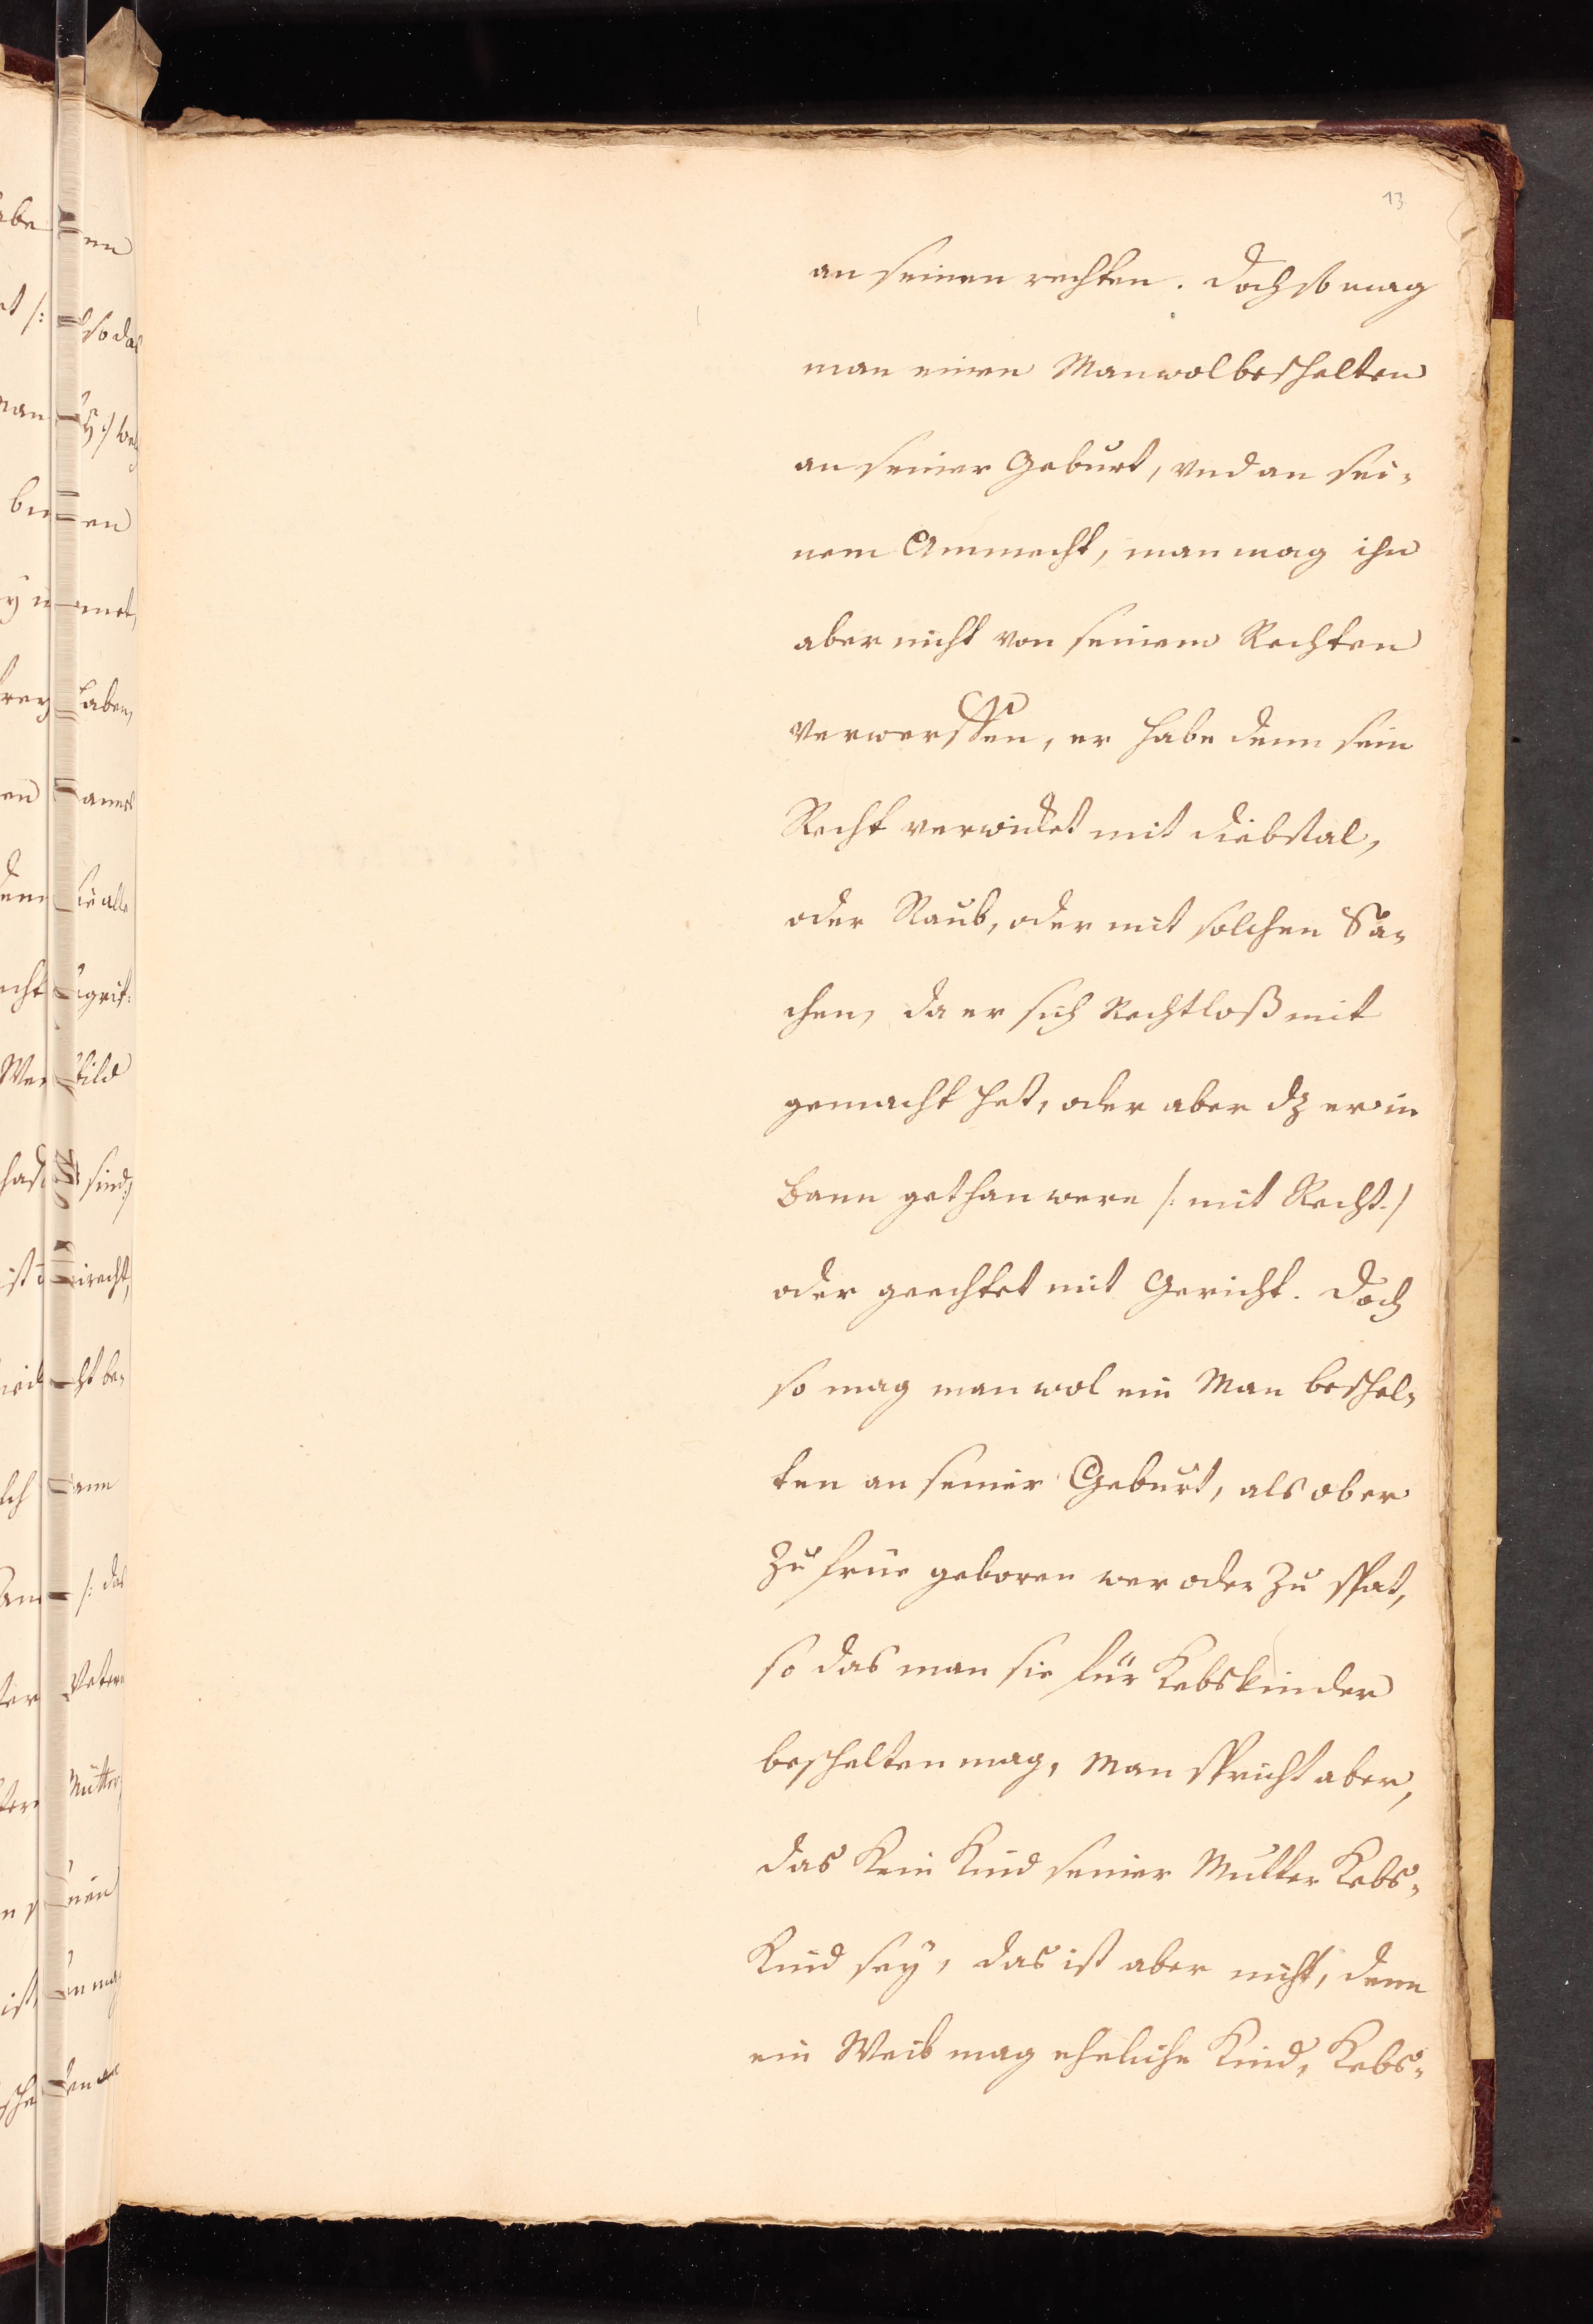 13
an seinen rechten. Doch so mag
man einen Man wol beschelten
an seiner Geburt, vnd an sei-
nem Ammecht, man mag ihn
aber nicht von seinem Rechten
verwerffen, er habe denn sein
Recht verwircket mit diebstal,
oder Raub, oder mit solchen Sa-
chen, da er sich Rechtloß mit
gemacht hat, oder aber dz er in
Bann gethan were /: mit Recht :/
oder geechtet mit Gericht. Doch
so mag man wol ein Man beschel-
ten an seiner Geburt, als ob er
zu früe geboren wer oder zu spat,
so das man sie für Kebskinder
beschelten mag, Man spricht aber,
das kein Kind seiner Mutter Kebs-
Kind sey, das ist aber nicht, denn
ein Weib mag eheliche Kind, Kebs-